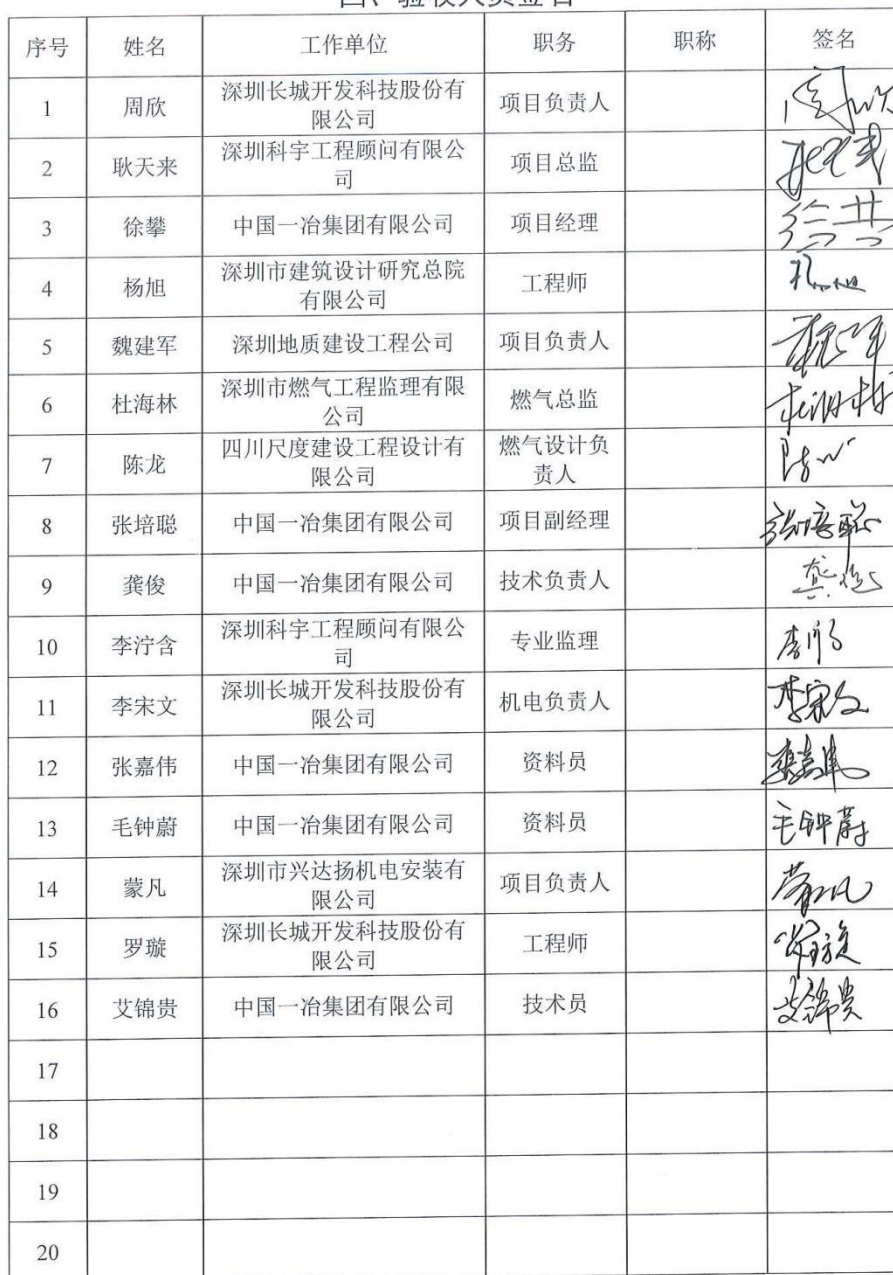 四、验收人员签名
序号 姓名 工作单位 职务 职称 签名
1 周欣 深圳长城开发科技股份有 项目负责人
限公司
2 耿天来 深圳科宇工程顾问有限公 项目总监
司
3 徐攀 中国一冶集团有限公司 项目经理
4 杨旭 深圳市建筑设计研究总院 工程师 杨旭
有限公司
5 魏建军 深圳地质建设工程公司 项目负责人
6 杜海林 深圳市燃气工程监理有限 燃气总监 杜海林
公司
7 陈龙 四川尺度建设工程设计有 燃气设计负
限公司 责人
8 张培聪 中国一冶集团有限公司 项目副经理 张培聪
9 龚俊 中国一冶集团有限公司 技术负责人 龚俊
10 李泞含 深圳科宇工程顾问有限公 专业监理
司
11 李宋文 深圳长城开发科技股份有 机电负责人 李宋文
限公司
12 张嘉伟 中国一冶集团有限公司 资料员
13 毛钟蔚 中国一冶集团有限公司 资料员 毛钟蔚
14 蒙凡 深圳市兴达扬机电安装有 项目负责人 蒙凡
限公司
15 罗璇 深圳长城开发科技股份有 工程师 罗璇
限公司
16 艾锦贵 中国一冶集团有限公司 技术员 艾锦贵
17
18
19
20